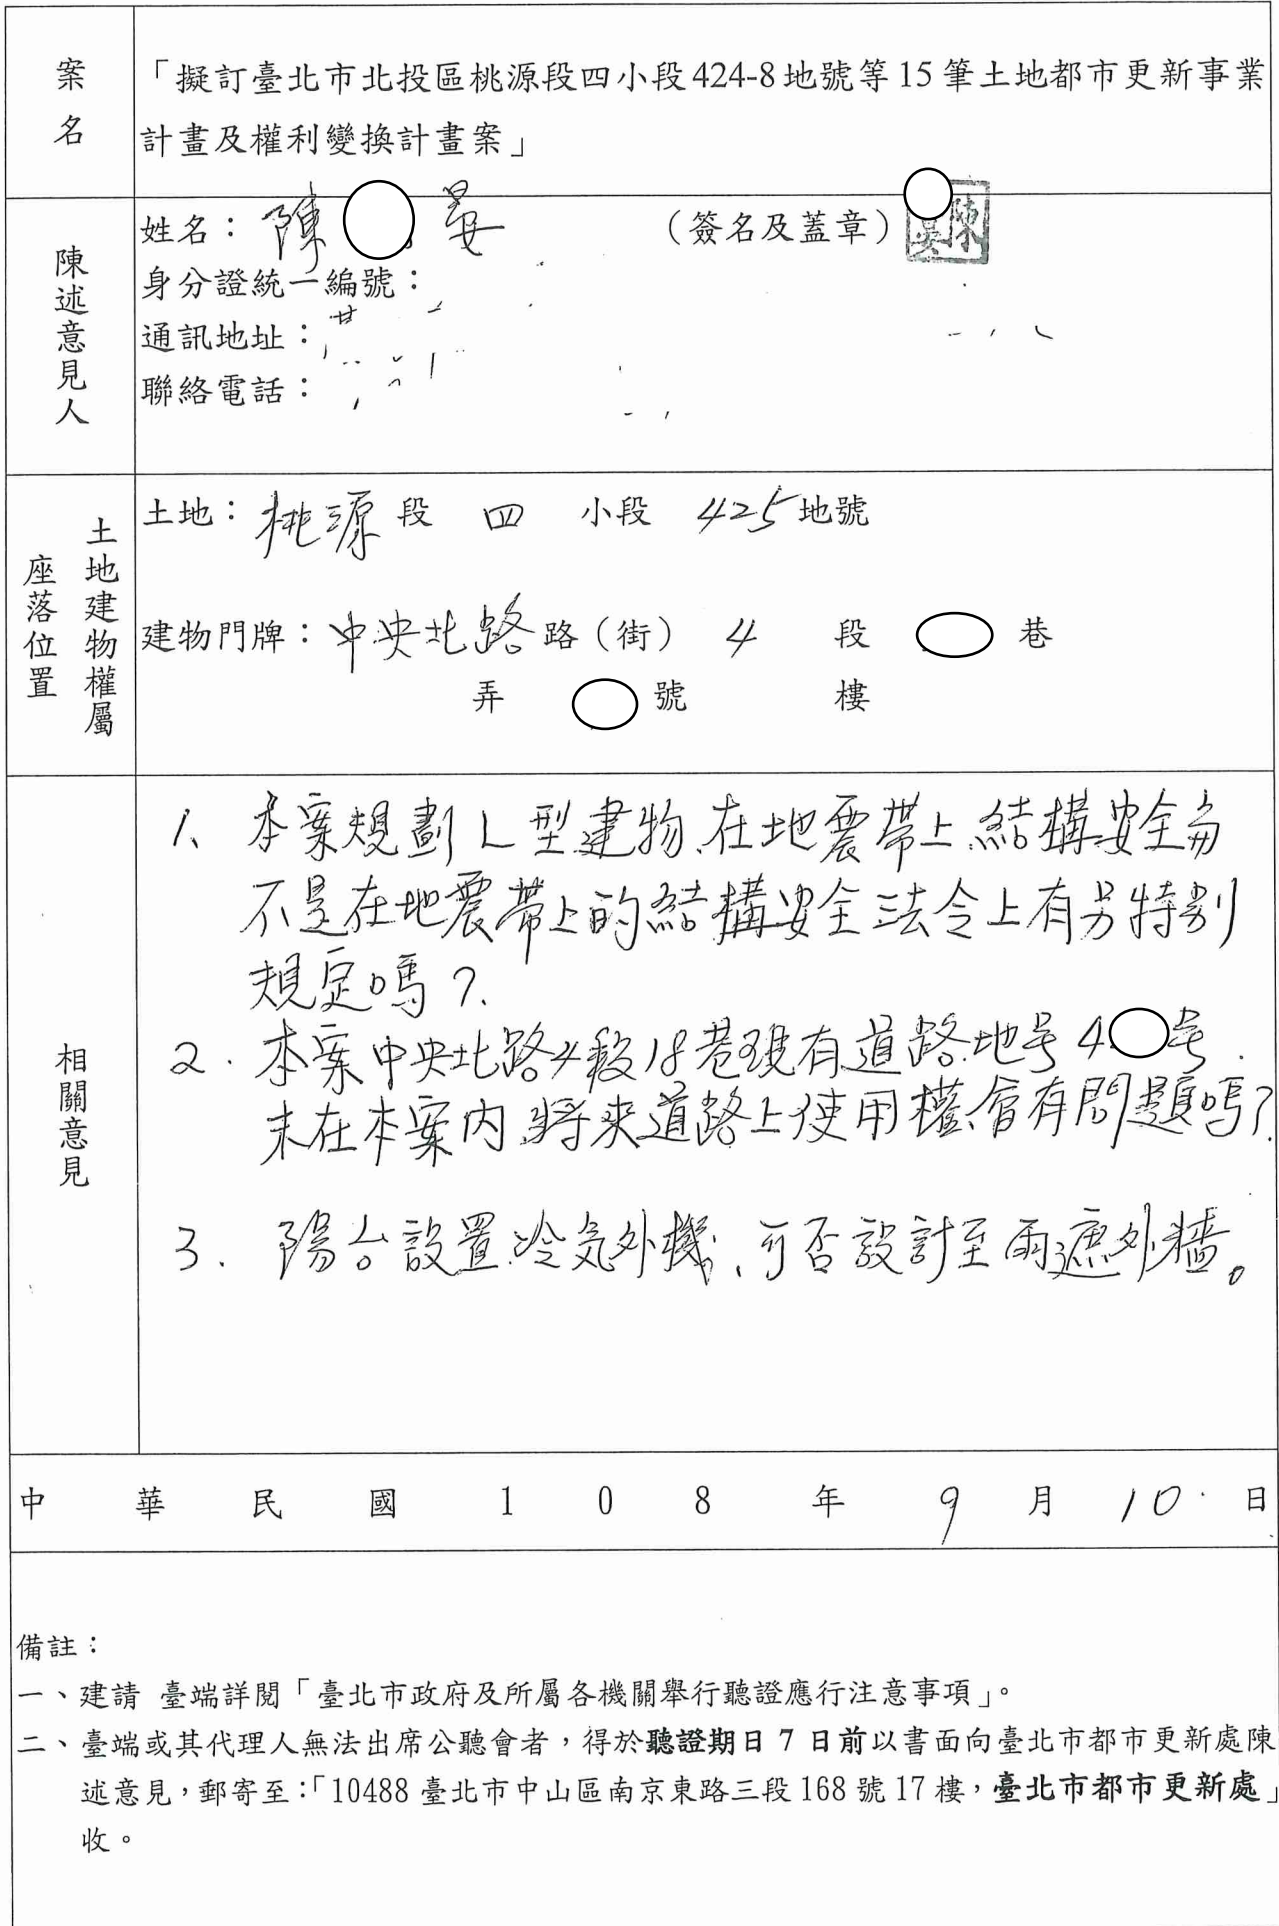 案名
「擬訂臺北市北投區桃源段四小段424-8地號等15筆土地都市更新事業
計畫及權利變換計畫案」
陳述意見人
姓名：陳 晏 （簽名及蓋章）陳
身分證統一編號：
通訊地址：
聯絡電話：
土地建物權屬
座落位置
土地：桃源段 四 小段 425地號
建物門牌：中央北路路（街） 4 段 巷
弄 號 樓
相關意見
1、本案規劃L型建物、在地震帶上、結構安全
不是在地震帶上的結構安全法令上有另特別
規定嗎？
2. 本案中央北路4段18巷現有道路、地号4 号.
未在本案內、將來道路上使用權、會有問題嗎？
3. 陽台設置冷気外機、可否設計至雨遮外牆。
中華民國108年9月10日
備註：
一、建請 臺端詳閱「臺北市政府及所屬各機關舉行聽證應行注意事項」。
二、臺端或其代理人無法出席公聽會者，得於聽證期日7日前以書面向臺北市都市更新處陳
述意見，郵寄至：「10488臺北市中山區南京東路三段168號17樓，臺北市都市更新處」
收。